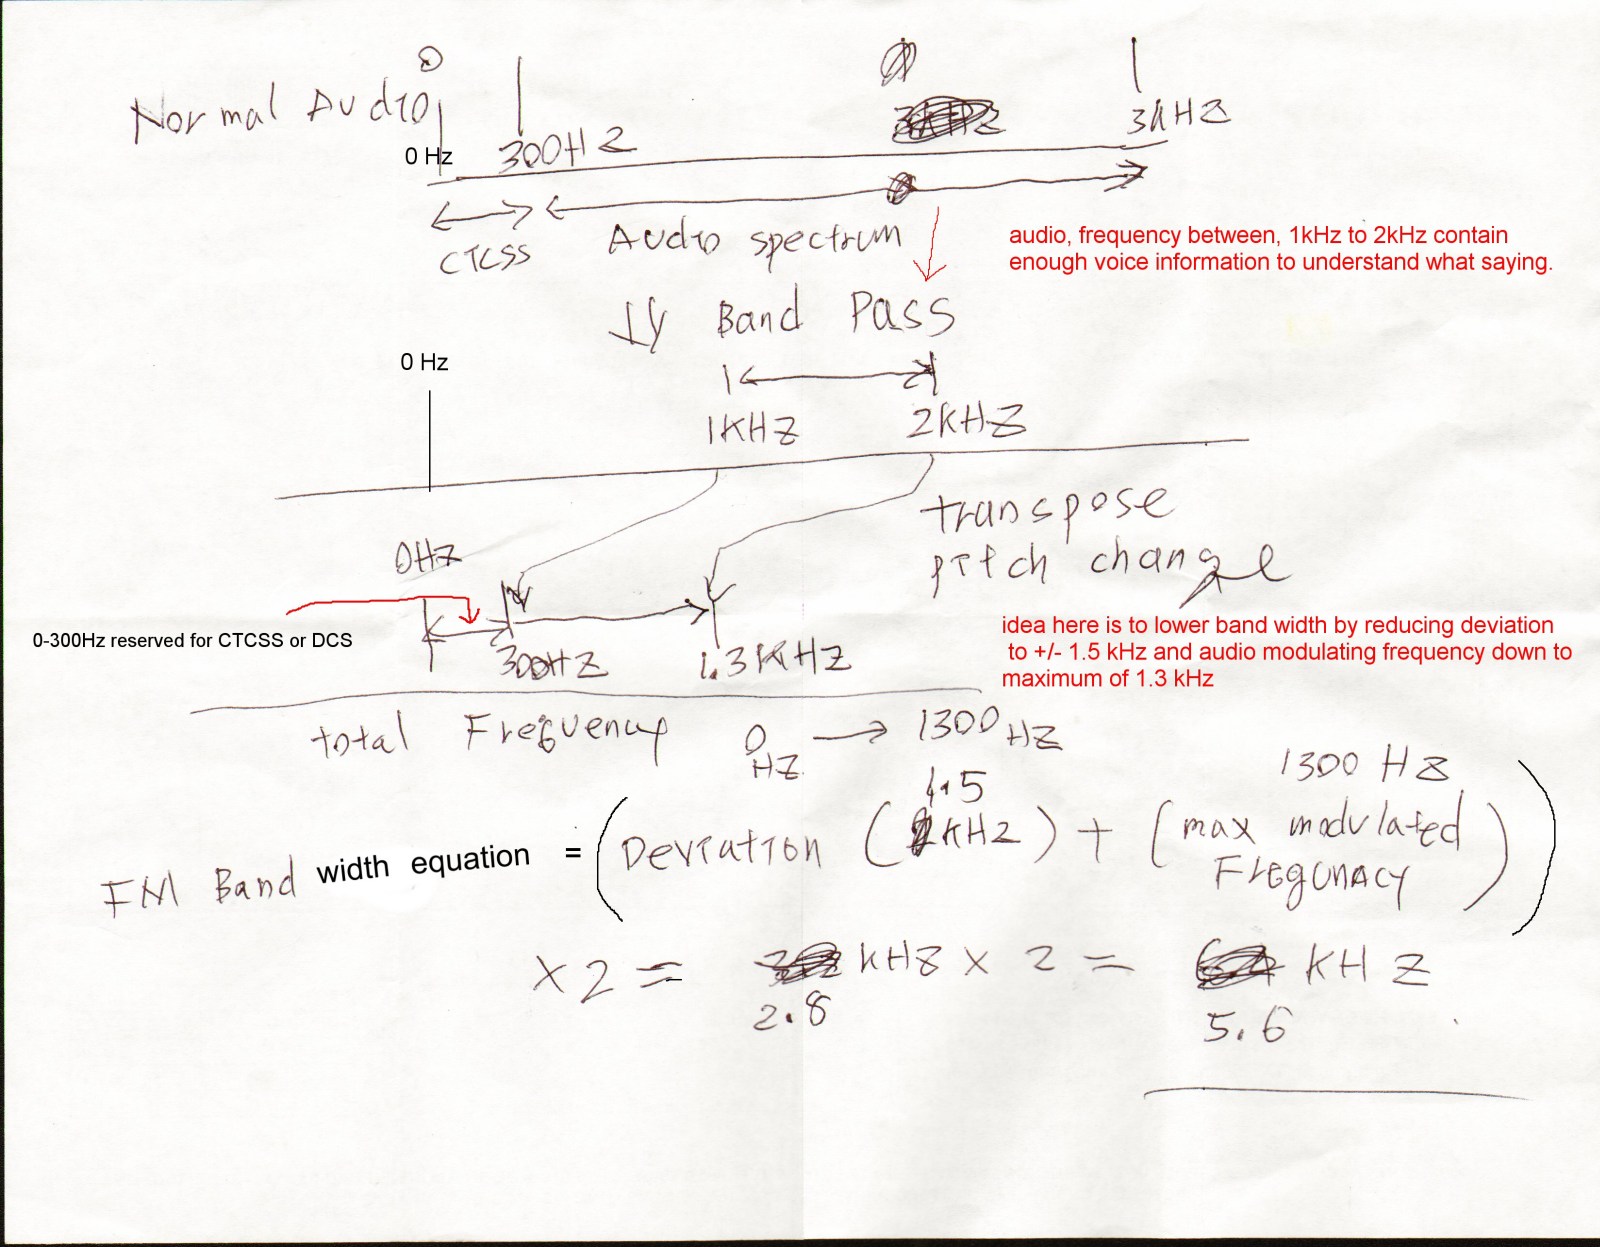 0
Normal Audio
3KHZ
0 Hz
300HZ
CTCSS
Audio spectrum
audio, frequency between, 1kHz to 2kHz contain
enough voice information to understand what saying.
Band Pass
0 Hz
1KHZ
2KHZ
transpose
pitch change
0HZ
0-300Hz reserved for CTCSS or DCS
300HZ
1.3KHZ
idea here is to lower band width by reducing deviation
to +/- 1.5 kHz and audio modulating frequency down to
maximum of 1.3 kHz
total Frequency 0 HZ → 1300 HZ
1300 HZ
1.5
FM Band width equation = (Deviation (KHZ) + (max modulated
Frequnacy))
x2 = KHZ x 2 = KHZ
2.8
5.6